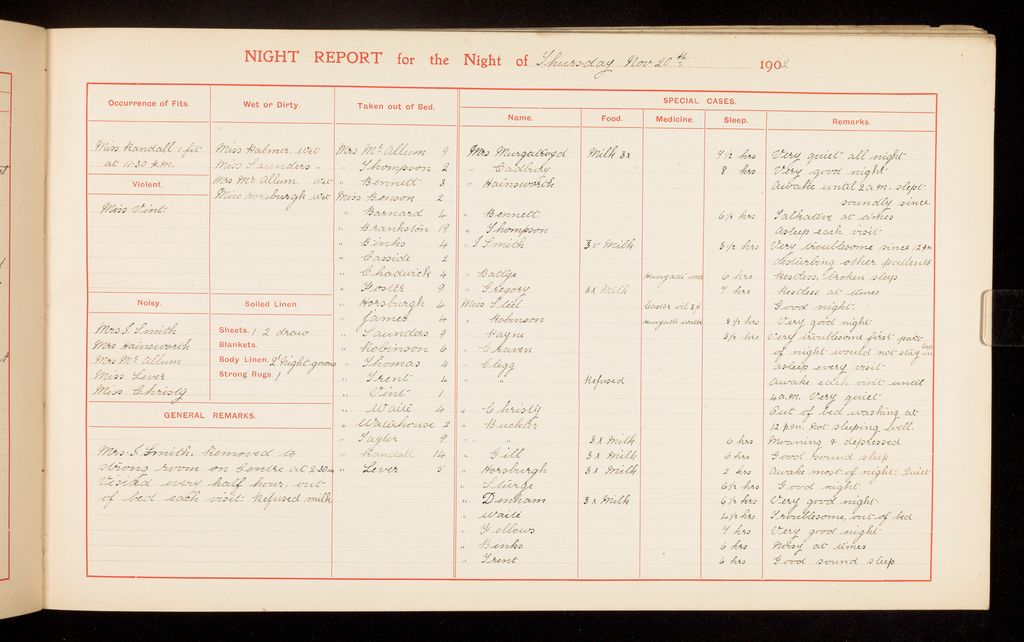 NIGHT REPORT for the Night of Thursday Nov 20th 1902
Occurrence of Fits.
Miss Randall 1 fit
at 11-30 p.m.
Violent.
Miss Vint.
Noisy.
Mrs I. Smith
Mrs Hainsworth
Mrs Mc Allum
Miss Lever
Miss Christy
Wet or Dirty.
Miss Palmer. Wet
Miss Saunders "
Mrs Mc Allum wet
Miss Horsburgh wet
Soiled Linen.
Sheets. 1 2 draw
Blankets.
Body Linen. 2 Night-gowns
Strong Rugs. 1
GENERAL REMARKS.
Mrs. I. Smith. Removed to
strong room on Centre at 2.30am
Visited every half hour, out
of bed each visit. Refused milk
Taken out of Bed.
Mrs Mc Allum 9
" Thompson 2
" Bennett 3
Miss Benson 2
" Barnard 4
" Brankston 19
" Binks 4
" Casside 2
" Chadwick 4
" Foster 9
" Horsburgh 4
" James 4
" Saunders 9
" Robinson 6
" Thomas 4
" Trent 4
" Vint 1
" Waite 4
" Waterhouse 2
" Taylor 9
" Randall 14
" Lever 5
SPECIAL CASES.
Name. Food. Medicine. Sleep. Remarks.
Mrs Murgatroyd Milk 3x 7 1/2 hrs Very quiet all night
" Cadbury 8 hrs Very good night
" Hainsworth Awake until 2 a.m. slept
soundly since
" Bennett 6 1/2 hrs Talkative at times
" Thompson asleep each visit
" I Smith 3x Milk 3 1/2 hrs Very troublesome since 12
disturbing other patients
" Badge Hunyadi 6 hrs Restless, broken sleep
" Gregory 3x Milk 7 hrs Restless at times
Miss Steel Castor oil Good night.
" Robinson Hunyadi water 8 1/2 hrs Very good night
" Payne 3 1/2 hrs Very troublesome first part
" Craven of night would not stay in bed
" Clegg asleep every visit
" " Refused Awake each visit until
4 a.m. Very quiet
" Christy Out of bed washing at
" Buckler 12 p.m. not sleeping well.
" " 3 x Milk 6 hrs Moaning & depressed
" Gill 3 x Milk 6 hrs Good sound sleep
" Horsburgh 3 x Milk 2 hrs Awake most of night. Quiet
" Sturge 6 1/2 hrs Good night
" Denham 3 x Milk 6 1/2 hrs Very good night.
" Waite 4 1/2 hrs Troublesome, out of bed
" Fellows 7 hrs Very good night
" Binks 6 hrs Noisy at times
" Trent 6 hrs Good sound sleep